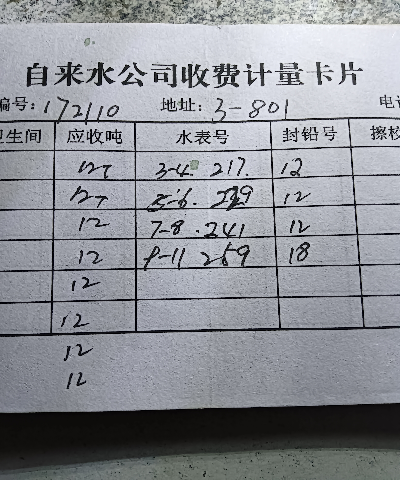 自来水公司收费计量卡片
编号: 172110 地址: 3-801 电话
卫生间 应收吨 水表号 封铅号 擦校
12T 3-4. 217. 12
12T 5-6. 229 12
12 7-8. 241 12
12 9-11 259 18
12
12
12
12